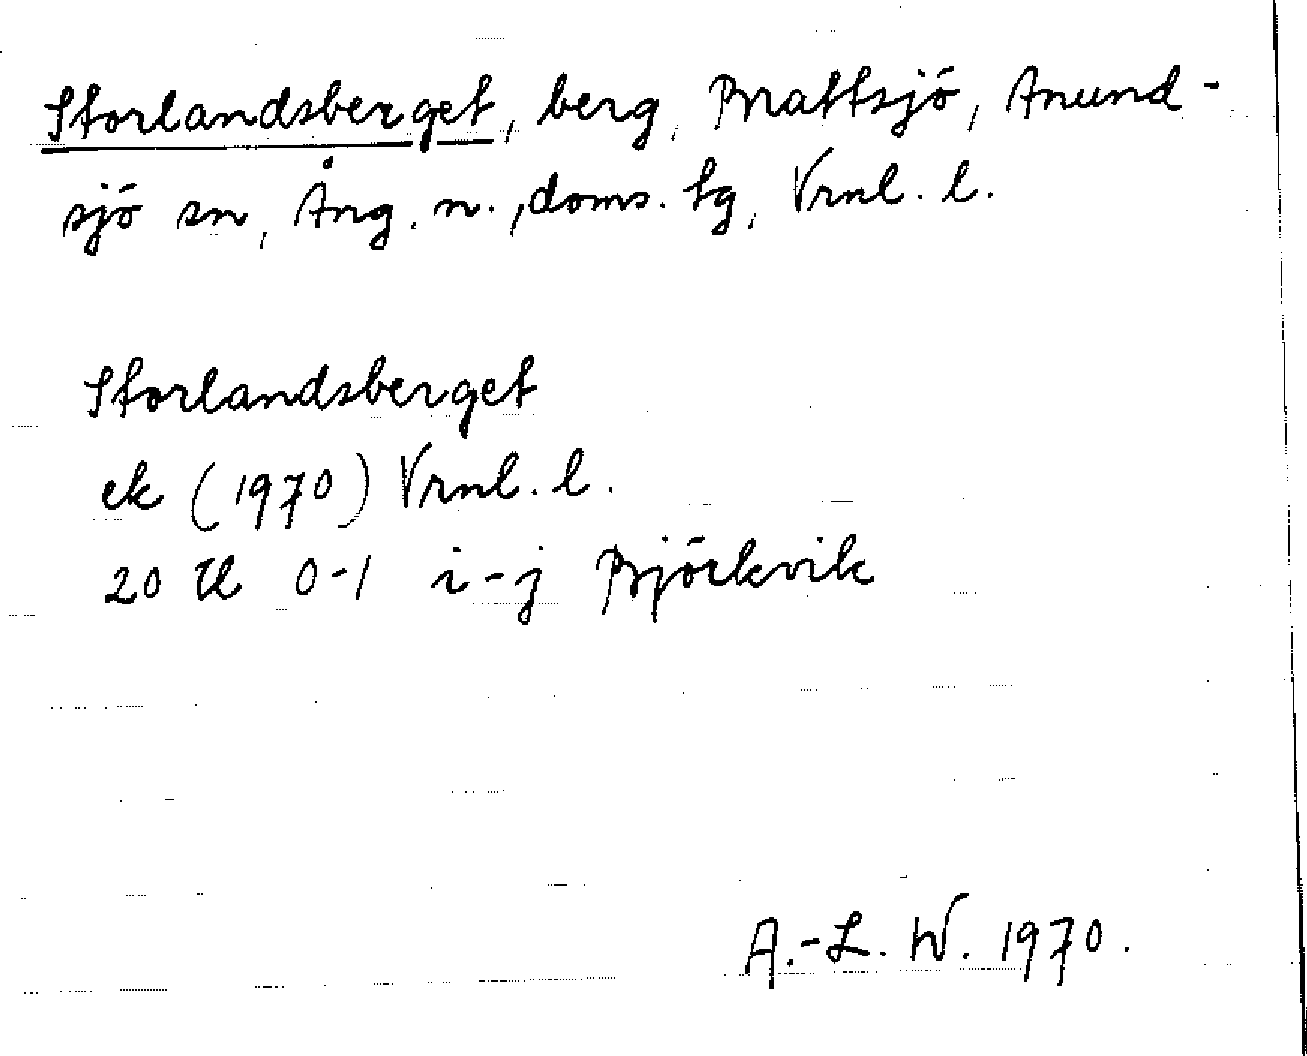 Storlandsberget, berg, Brattsjö, Anund-
sjö sn, Ång. n., doms. tg, Vrnl. l.
Storlandsberget
ek (1970) Vrnl. l.
20 H 0-1 i-j Björkvik
A.-L. W. 1970.